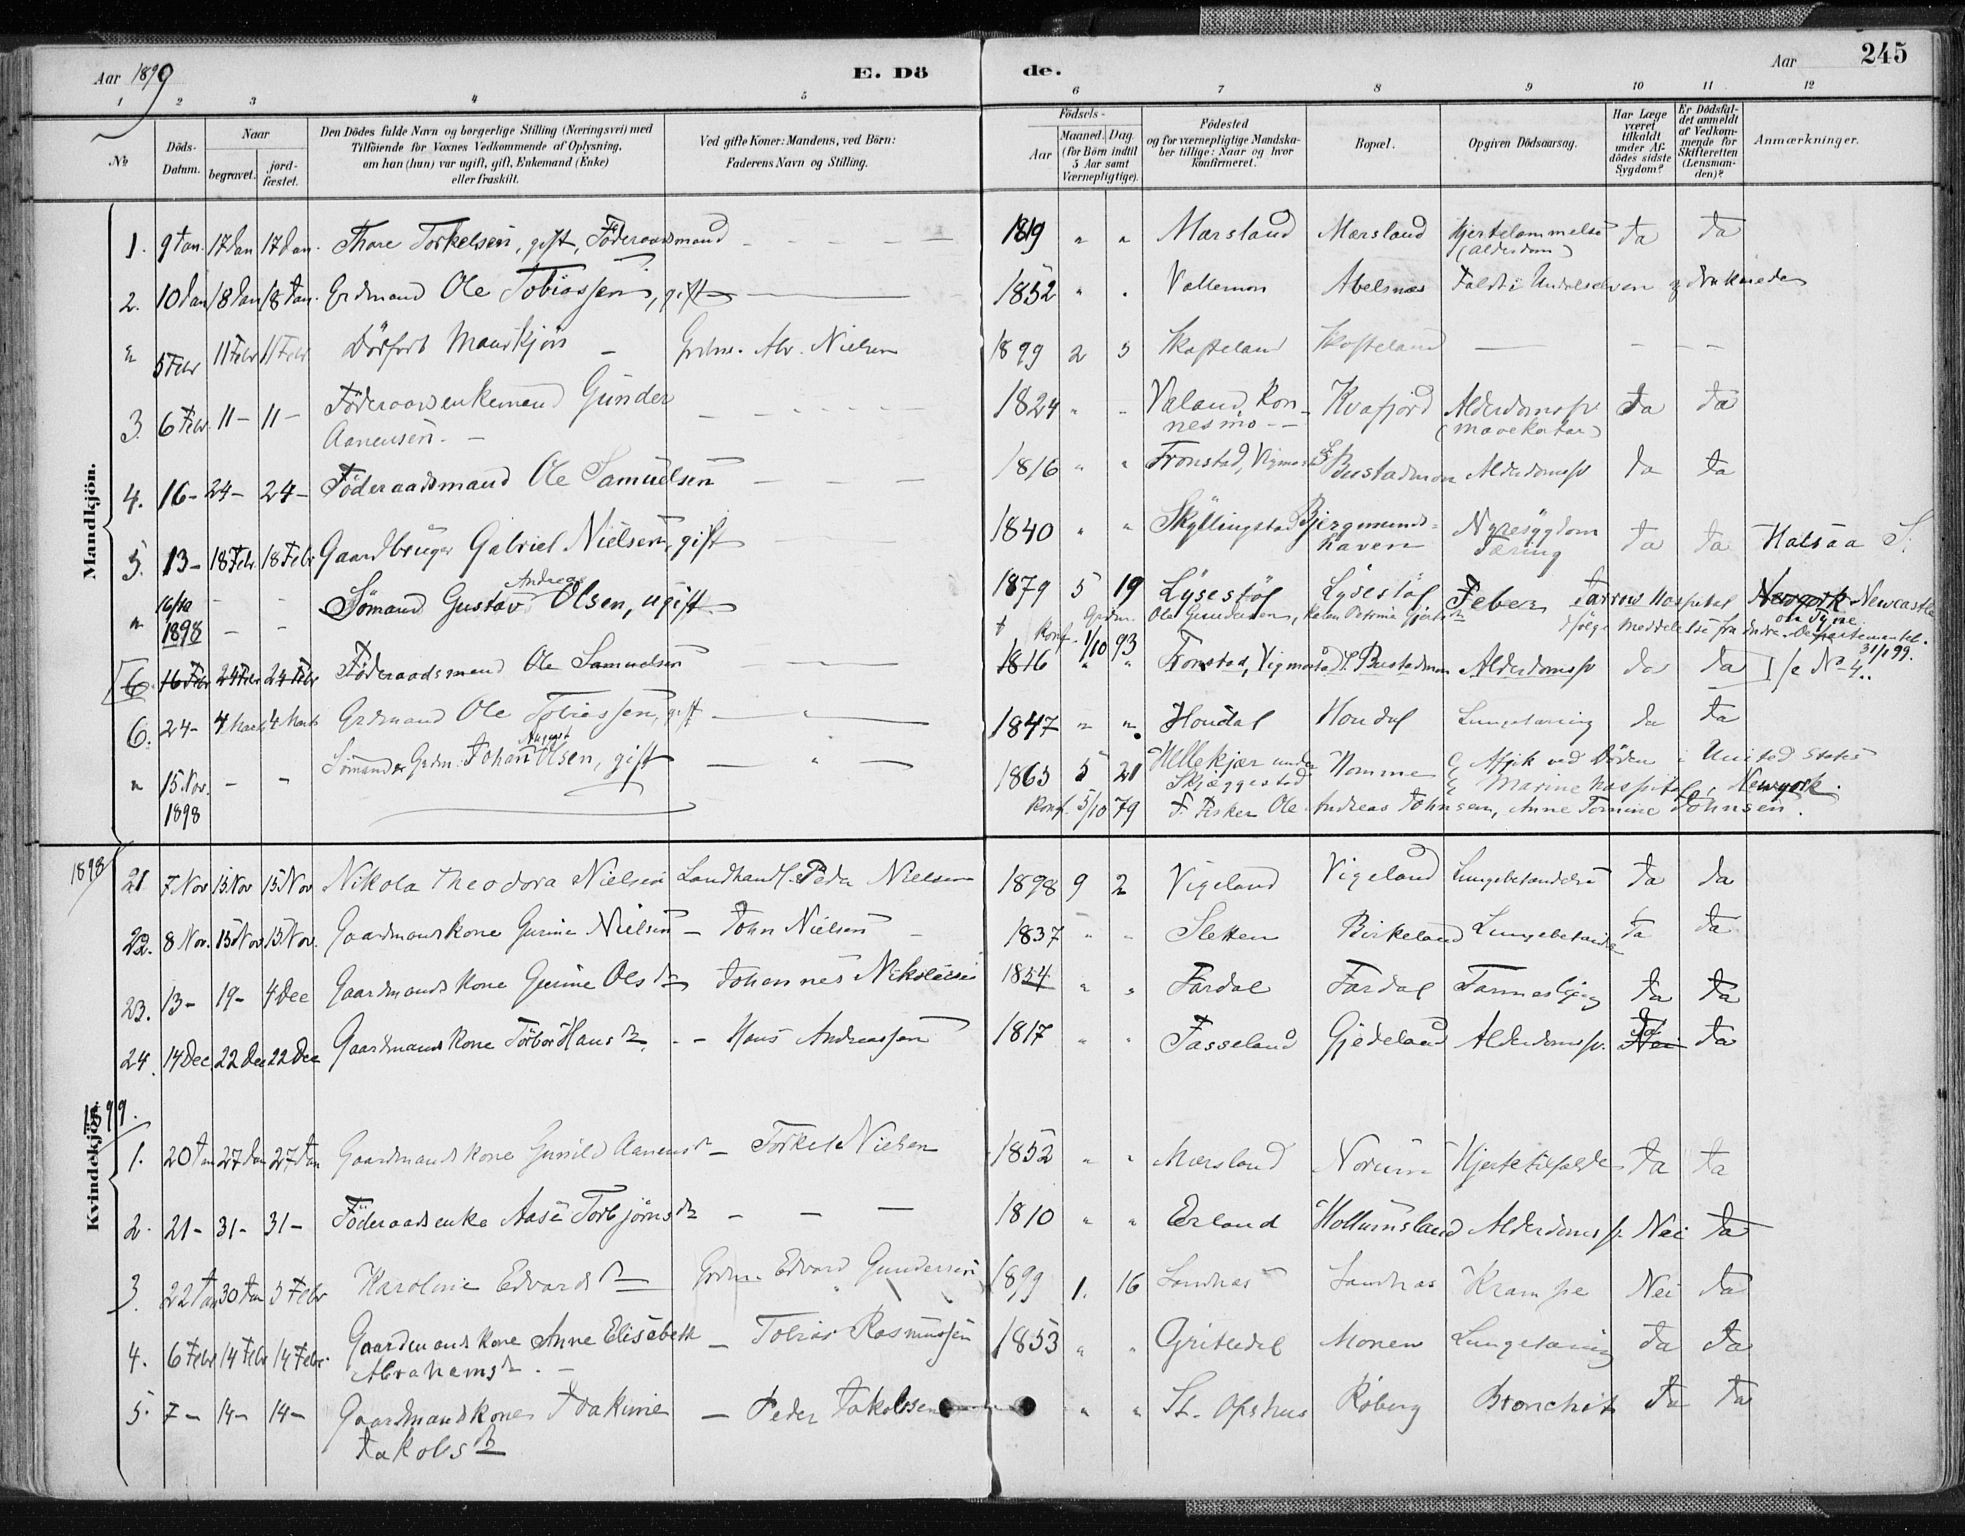 Aar 1899 E. Dö de. Aar 245
1 2 3 4 5 6 7 8 9 10 11 12
No
Döds-Datum.
Naar begravet. jord-fæstet.
Den Dödes fulde Navn og borgerlige Stilling (Næringsvei) med
Tilföiende for Voxnes Vedkommende af Oplysning,
om han (hun) var ugift, gift, Enkemand (Enke)
eller fraskilt.
Ved gifte Koner: Mandens, ved Börn:
Faderens Navn og Stilling.
Födsels-
Aar Maaned. Dag.
(for Börn indtil 5 Aar samt Værnepligtige).
Födested
og for værnepligtige Mandska-
ber tillige: Naar og hvor
Konfirmeret.
Bopæl.
Opgiven Dödsaarsag.
Har Læge været tilkaldt under Af-dödes sidste Sygdom?
Er Dödsfal-det anmeldt af Vedkom-mende for Skifteretten (Lensman-den)?
Anmærkninger.
Mandkjön.
1. 9 Jan. 17 Jan 17 Jan. Thore Torkelsen, gift, Föderaadsmand 1819 " " Marsland Marsland Hjertelammelse (alderdom) Ja Ja
2. 10 Jan 18 Jan 18 Jan. Grdmand Ole Tobiassen, gift 1852 " " Vallemon Abelsnæs Faldt i Undalselven og druknede
" 5 Febr 11 Febr 11 Febr Dödfødt Mandkjön - Grdm. Abr. Nielsen 1899 2 5 Skofteland Skofteland - - -
3. 6 Febr 11 - 11 - Föderaadsenkemand Gunder
Aanensen. - 1824 " " Valand, Kon-
nesmo - Kvafjord Alderdomssv (mavekatar) Ja Ja
4. 16 - 24 - 24 - Föderaadsmand Ole Samuelsen 1816 " " Tronstad, Vigmostad Bustadmon Alderdomssv Ja Ja
5. 13 - 18 Febr. 18 Febr Gaardbruger Gabriel Nielsen, gift 1840 " " Skyllingstad Bjergmunds-
haven Nyresygdom
Tæring Ja Ja Halsaa S.
" 16/10 1898 - - Sömand Gustav Andreas Olsen, ugift 1879 5 19 Lysestöl Lysestöl Feber Jarrow Hospital Newyork Newcastle on Tyne
Konf. 1/10 93 Grdm. Ole Gundersen, ifölge Meddelelse fra Indre-Departementet. 31/1 99.
6. 16 Febr 24 Febr 24 Febr Föderaadsmand Ole Samuelsen 1816 " " Tronstad, Vigmostad Bustadmon Alderdomssv Ja Ja se No 4.
6. 24 - 4 Marts 4 Marts Grdmand Ole Tobiassen, gift 1847 " " Houdal Houdal Lungetæring Ja Ja
" 15. Nov. 1898 - - Sömand Grdm. Johan August Olsen, gift 1863 5 21 Ullekjær under
Skjæggestad Homme Afgik ved Döden i United States
Marine Hospital, Newyork.
Konf. 5/10 79 F. Fisker Ole Andreas Johnsen, Anne Tomine Johnsen.
Kvindekjön.
1898
21 7. Nov 13. Nov 15 Nov Nikola Theodora Nielsen Landhandl. Peder Nielsen 1898 9 2 Vigeland Vigeland Lungebetændelse Ja Ja
22. 8 Nov. 15 Nov 15 Nov. Gaardmandskone Gurine Nielsen - John Nielsen 1837 " " Sletten Birkeland Lungebetændelse Ja Ja
23. 13 - 19 - 4 Dec Gaardmandskone Gurine Olsdr - Johannes Nikolaisen 1854 " " Fardal Fardal Ja Ja
24. 14 Dec 22 Dec 22 Dec Gaardmandskone Torbor Hansdr. - Hans Andreassen 1817 " " Fasseland Gjedeland Alderdomssv. Nei Ja Ja
1899.
1. 20 Jan 27 Jan 27 Jan Gaardmandskone Gunild Aanensdr - Torkel Nielsen 1852 " " Marsland Norum Hjertetilfælde Ja Ja
2. 21 - 31 - 31 - Föderaadsenke Aase Torbjörnsdr - - - 1810 " " Erland Hollumsland Alderdomssv. Nei Ja
3. 22 Jan 30 Jan 5 Febr Karoline Edvardsdr Grdm. Edvard Gundersen 1899 1. 16 Landnæs Landnæs Krampe Nei Ja
4. 6 Febr 14 Febr 14 Febr. Gaardmandskone Anne Elisabeth
Abrahamsdr. - Tobias Rasmussen 1853 " " Gristedal Monen Lungetæring Ja Ja
5. 7 - 14 - 14 - Gaardmandskone Joakime
Jakobsdr - Peder Jakobsen " " St. Ofshus Röberg Bronchit Ja Ja